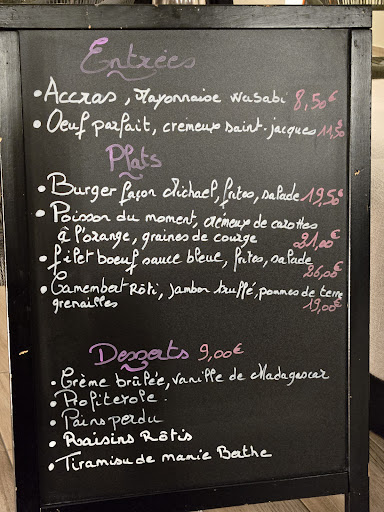 Entrées
• Accras, Mayonnaise wasabi 8,50€
• Oeuf parfait, crémeux saint-jacques 11,50
Plats
• Burger façon Michael, frites, salade 19,50€
• Poisson du moment, crémeux de carottes
à l'orange, graines de courge 21,00€
• filet boeuf sauce bleue, frites, salade
26,00€
• Camembert Rôti, jambon truffé, pommes de terre
grenailles 19,00€
Desserts 9,00€
• Crème brûlée, vanille de Madagascar
• Profiterole.
• Pains perdu
• Raisins Rôtis
• Tiramisu de manie Berthe